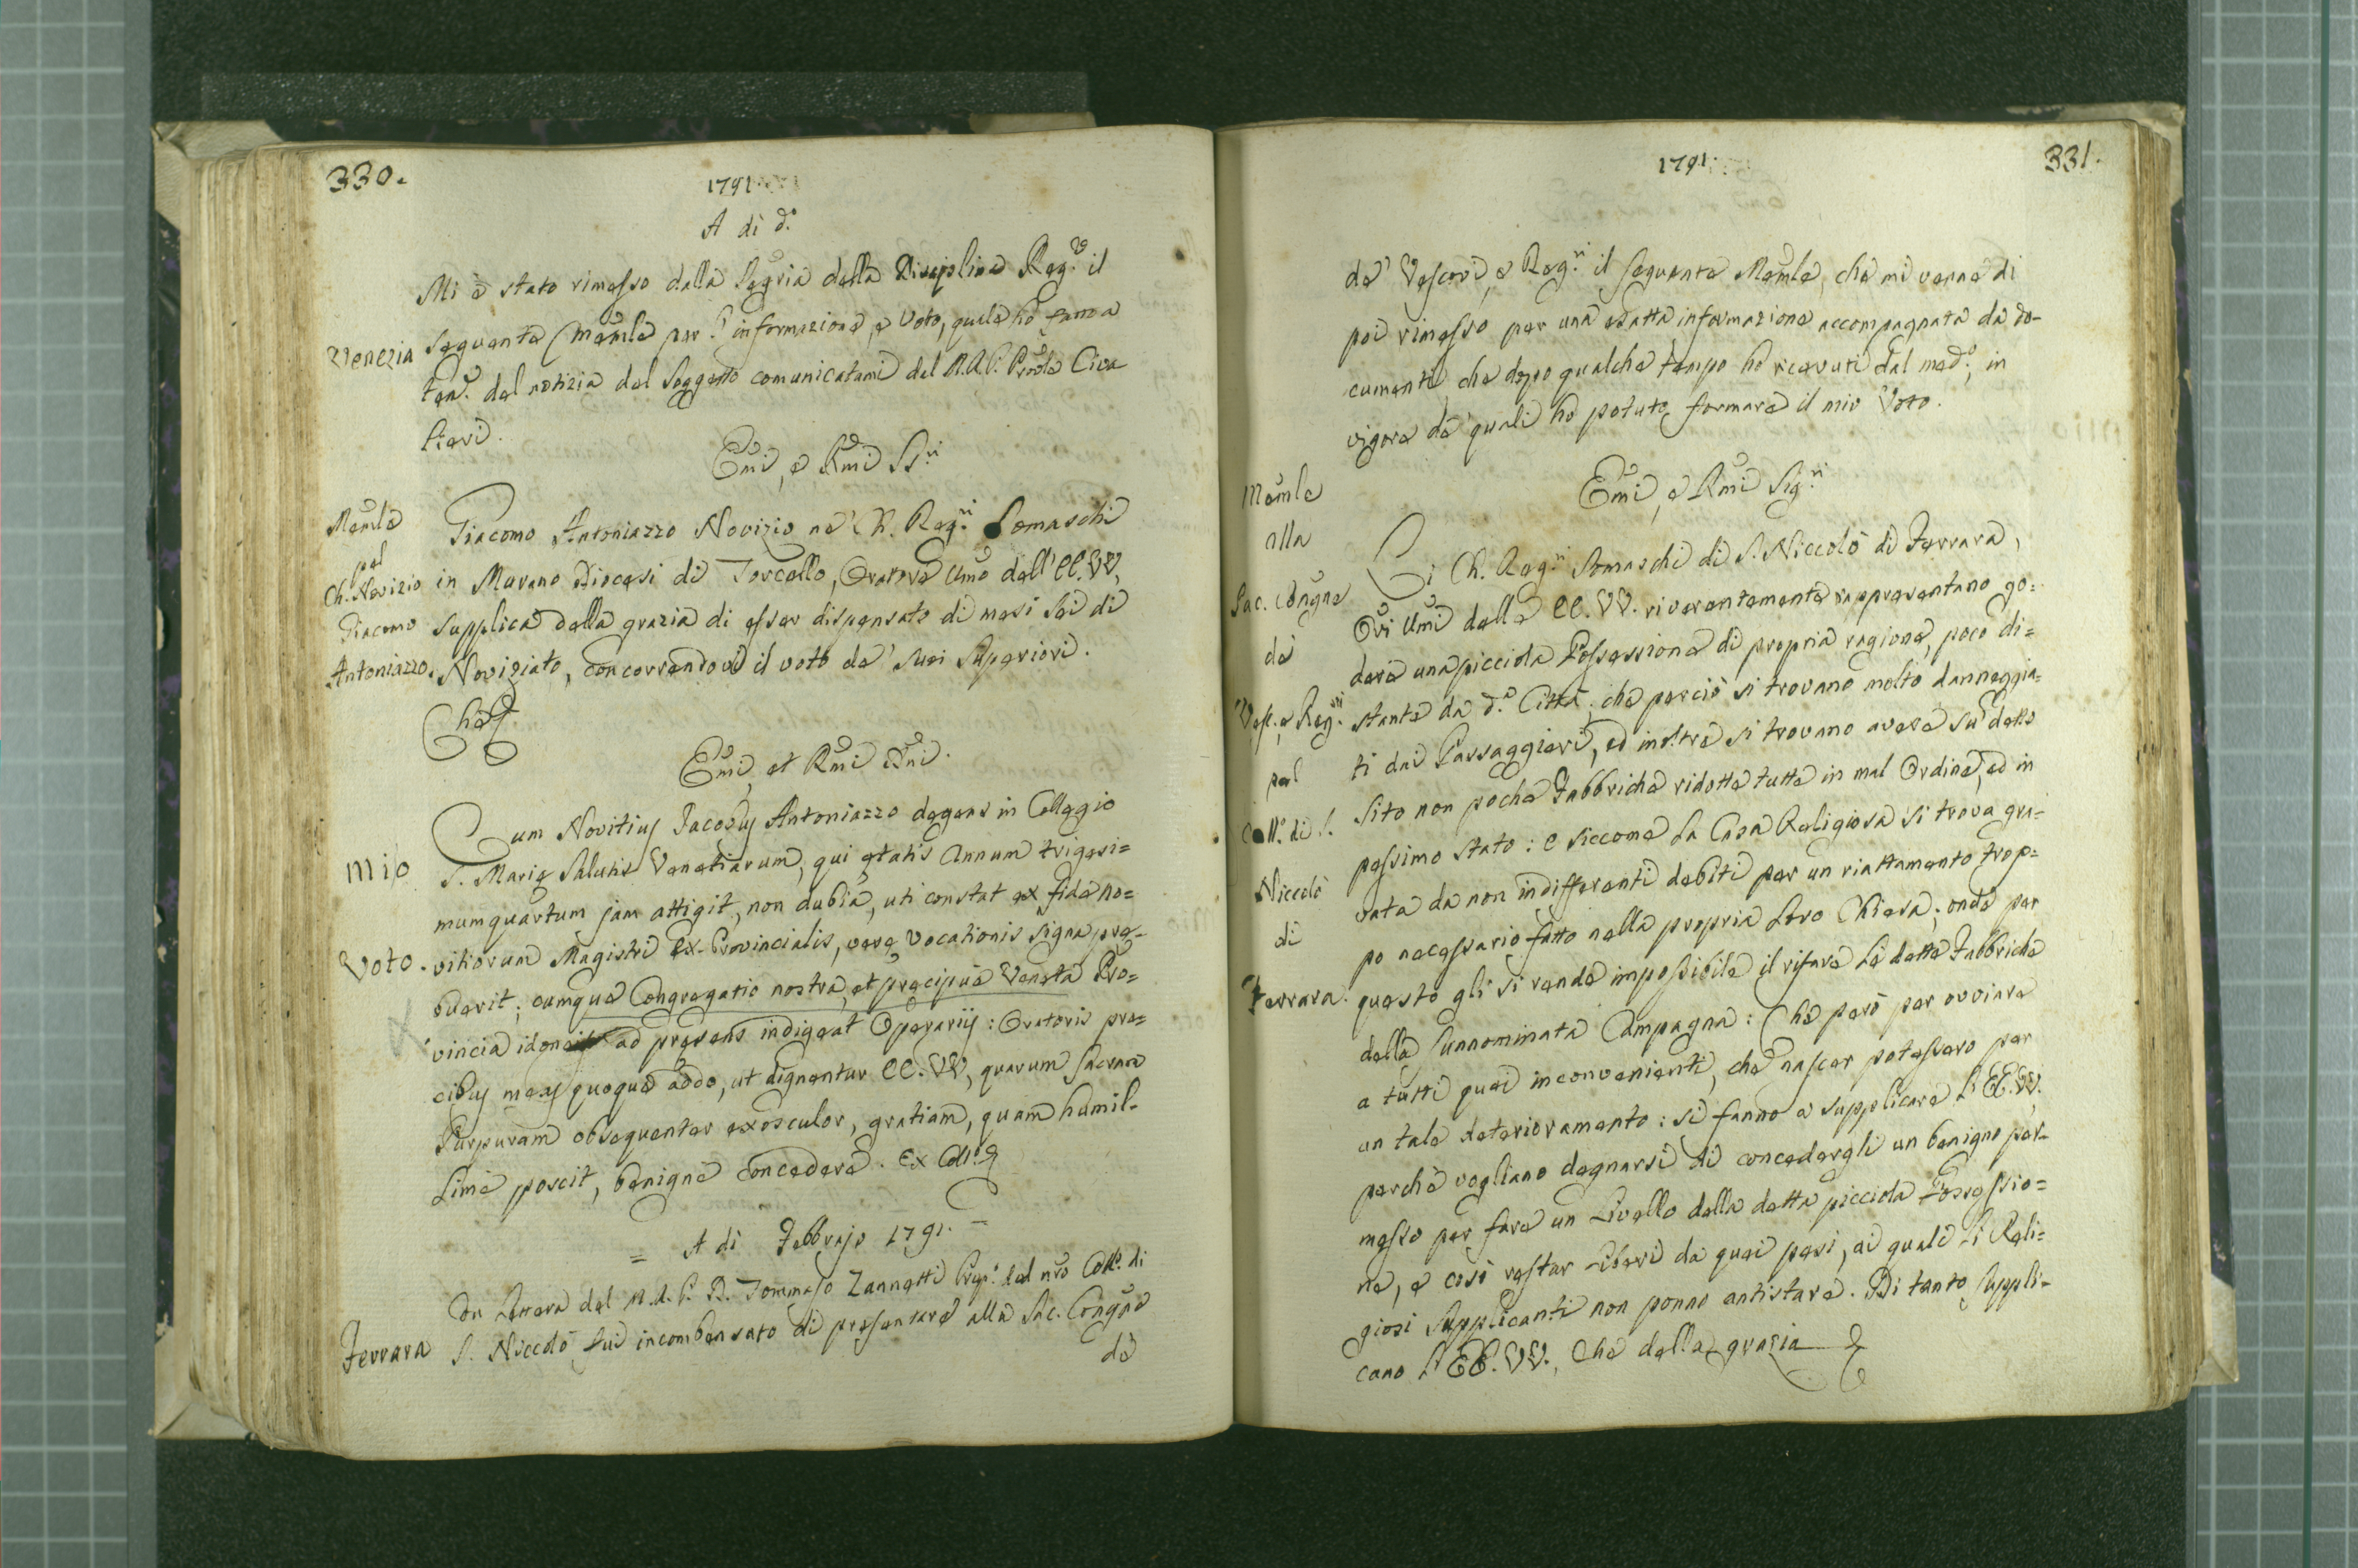 330.
1791.
A dì d.º
Mi è stato rimesso dalla Segria della Disciplina Reg.e il
Venezia
seguente Memle per l'informazione, e Voto, quale ho fatto a
ten.e del notizia del Soggetto comunicatami dal M.R.P. Prōale Cica
lieri.
Em̃i, e Rm̃i SS.ri
Memle
pel
Ch. Novizio
Giacomo
Antoniazzo.
Giacomo Antoniazzo Novizio ne' Ch. Reg.ri Somaschi
in Murano Diocesi di Torcello, Oratore Um̃o dell' EE. VV,
supplica della grazia di esser dispensato di mesi sei di
Noviziato, concorrendovi il voto de' suoi Superiori.
Che
Em̃i, et Rm̃i Dn̄i.
Mio
Voto.
Cum Novitius Jacobus Antoniazzo degens in Collegio
S. Marię Salutis Venetiarum, qui ętatis annum trigesi=
mumquartum jam attigit, non dubia, uti constat ex fide no=
vitiorum Magistri Ex-Provincialis, verę vocationis signa prę-
buerit; cumque Congregatio nostra, et pręcipue Veneta Pro=
vincia idoneis ad pręsens indigeat Operarijs: Oratoris pre=
cibus meas quoque addo, ut dignentur EE. VV, quarum sacram
Purpuram obsequenter exosculor, gratiam, quam humil-
lime poscit, benigne concedere. Ex Coll.
= A dì Febbrajo 1791. =
Ferrara
Con Lettera del M.R.P. D. Tommaso Zannetti Prep.º del nr̃o Coll.º di
S. Niccolò fui incombensato di presentare alla Sac. Congñe
de
331.
1791.
de' Vescovi, e Reg.ri il seguente Memle, che mi venne di
poi rimesso per una esatta informazione accompagnata da do-
cumenti che dopo qualche tempo ho ricevuti dal med.º, in
vigore de' quali ho potuto formare il mio Voto.
Em̃i, e Rm̃i Sig.ri
Memle
alla
Sac. Congñe
de
Vesc., e Reg.ri
pel
Coll.º di S.
Niccolò
di
Ferrara.
Li Ch. Reg.ri Somaschi di S. Niccolò di Ferrara,
Ori Um̃i delle EE. VV. riverentemente rappresentano go=
dere una picciola Possessione di propria ragione, poco di=
stante da d.ª Città, che perciò si trovano molto danneggia=
ti dai Passaggieri, ed inoltre si trovano avere su detto
Sito non poche Fabbriche ridotte tutte in mal Ordine, ed in
pessimo stato: e siccome la Casa Religiosa si trova gra-
vata da non indifferenti debiti per un riattamento trop=
po necessario fatto nella propria loro Chiesa; onde per
questo gli si rende impossibile il rifare le dette Fabbriche
della sunnominata Campagna: Che però per ovviare
a tutti quei inconvenienti, che nascer potessero per
un tale deterioramento: si fanno a supplicare l' EE. VV.
perchè vogliano degnarsi di concedergli un benigno per-
messo per fare un Livello della detta picciola Possessio=
ne, e così restar liberi da quei pesi, ai quali li Reli=
giosi Supplicanti non ponno antistare. Di tanto suppli-
cano l' EE. VV., Che della grazia